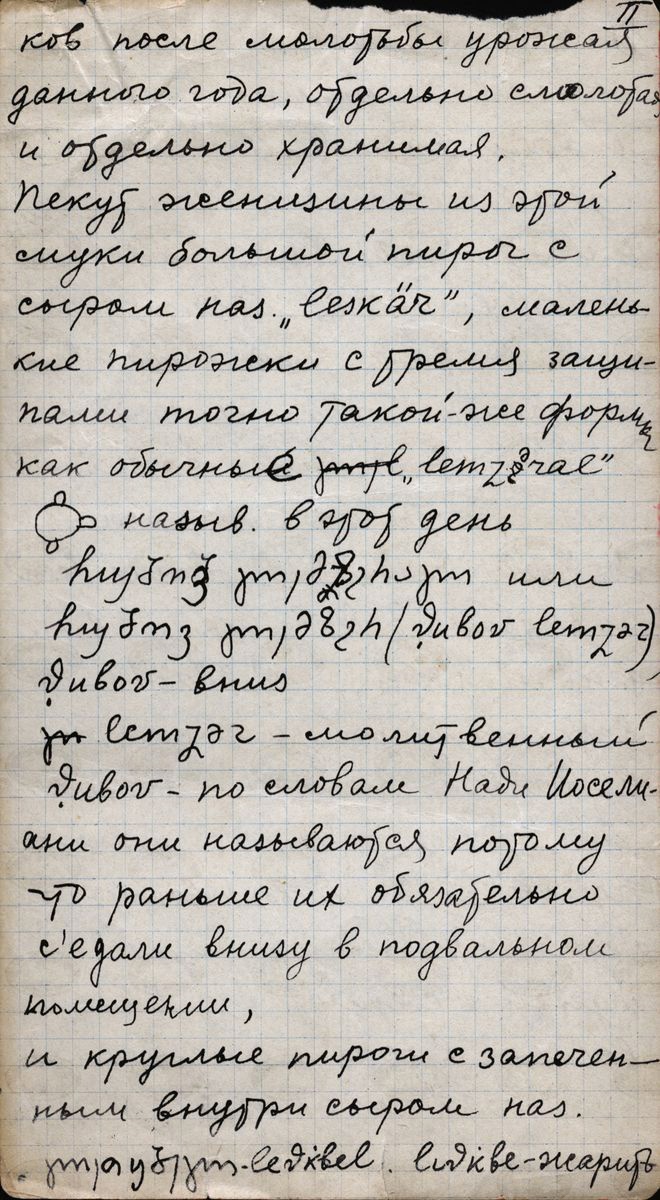 II
ков после молотьбы урожая
данного года, отдельно смолотая
и отдельно хранимая.
Пекут женщины из этой
муки большой пирог с
сыром наз. „leskär”, малень-
кие пирожки с тремя защи-
пами точно такой-же формы
как обычные „lemzəral”
назыв. в этот день
или
lemzər)
вниз
lemzər – молитвенный
по словам Нади Иосели-
ани они называются потому
что раньше их обязательно
с'едали внизу в подвальном
помещении,
и круглые пироги с запечен-
ным внутри сыром наз.
жарить